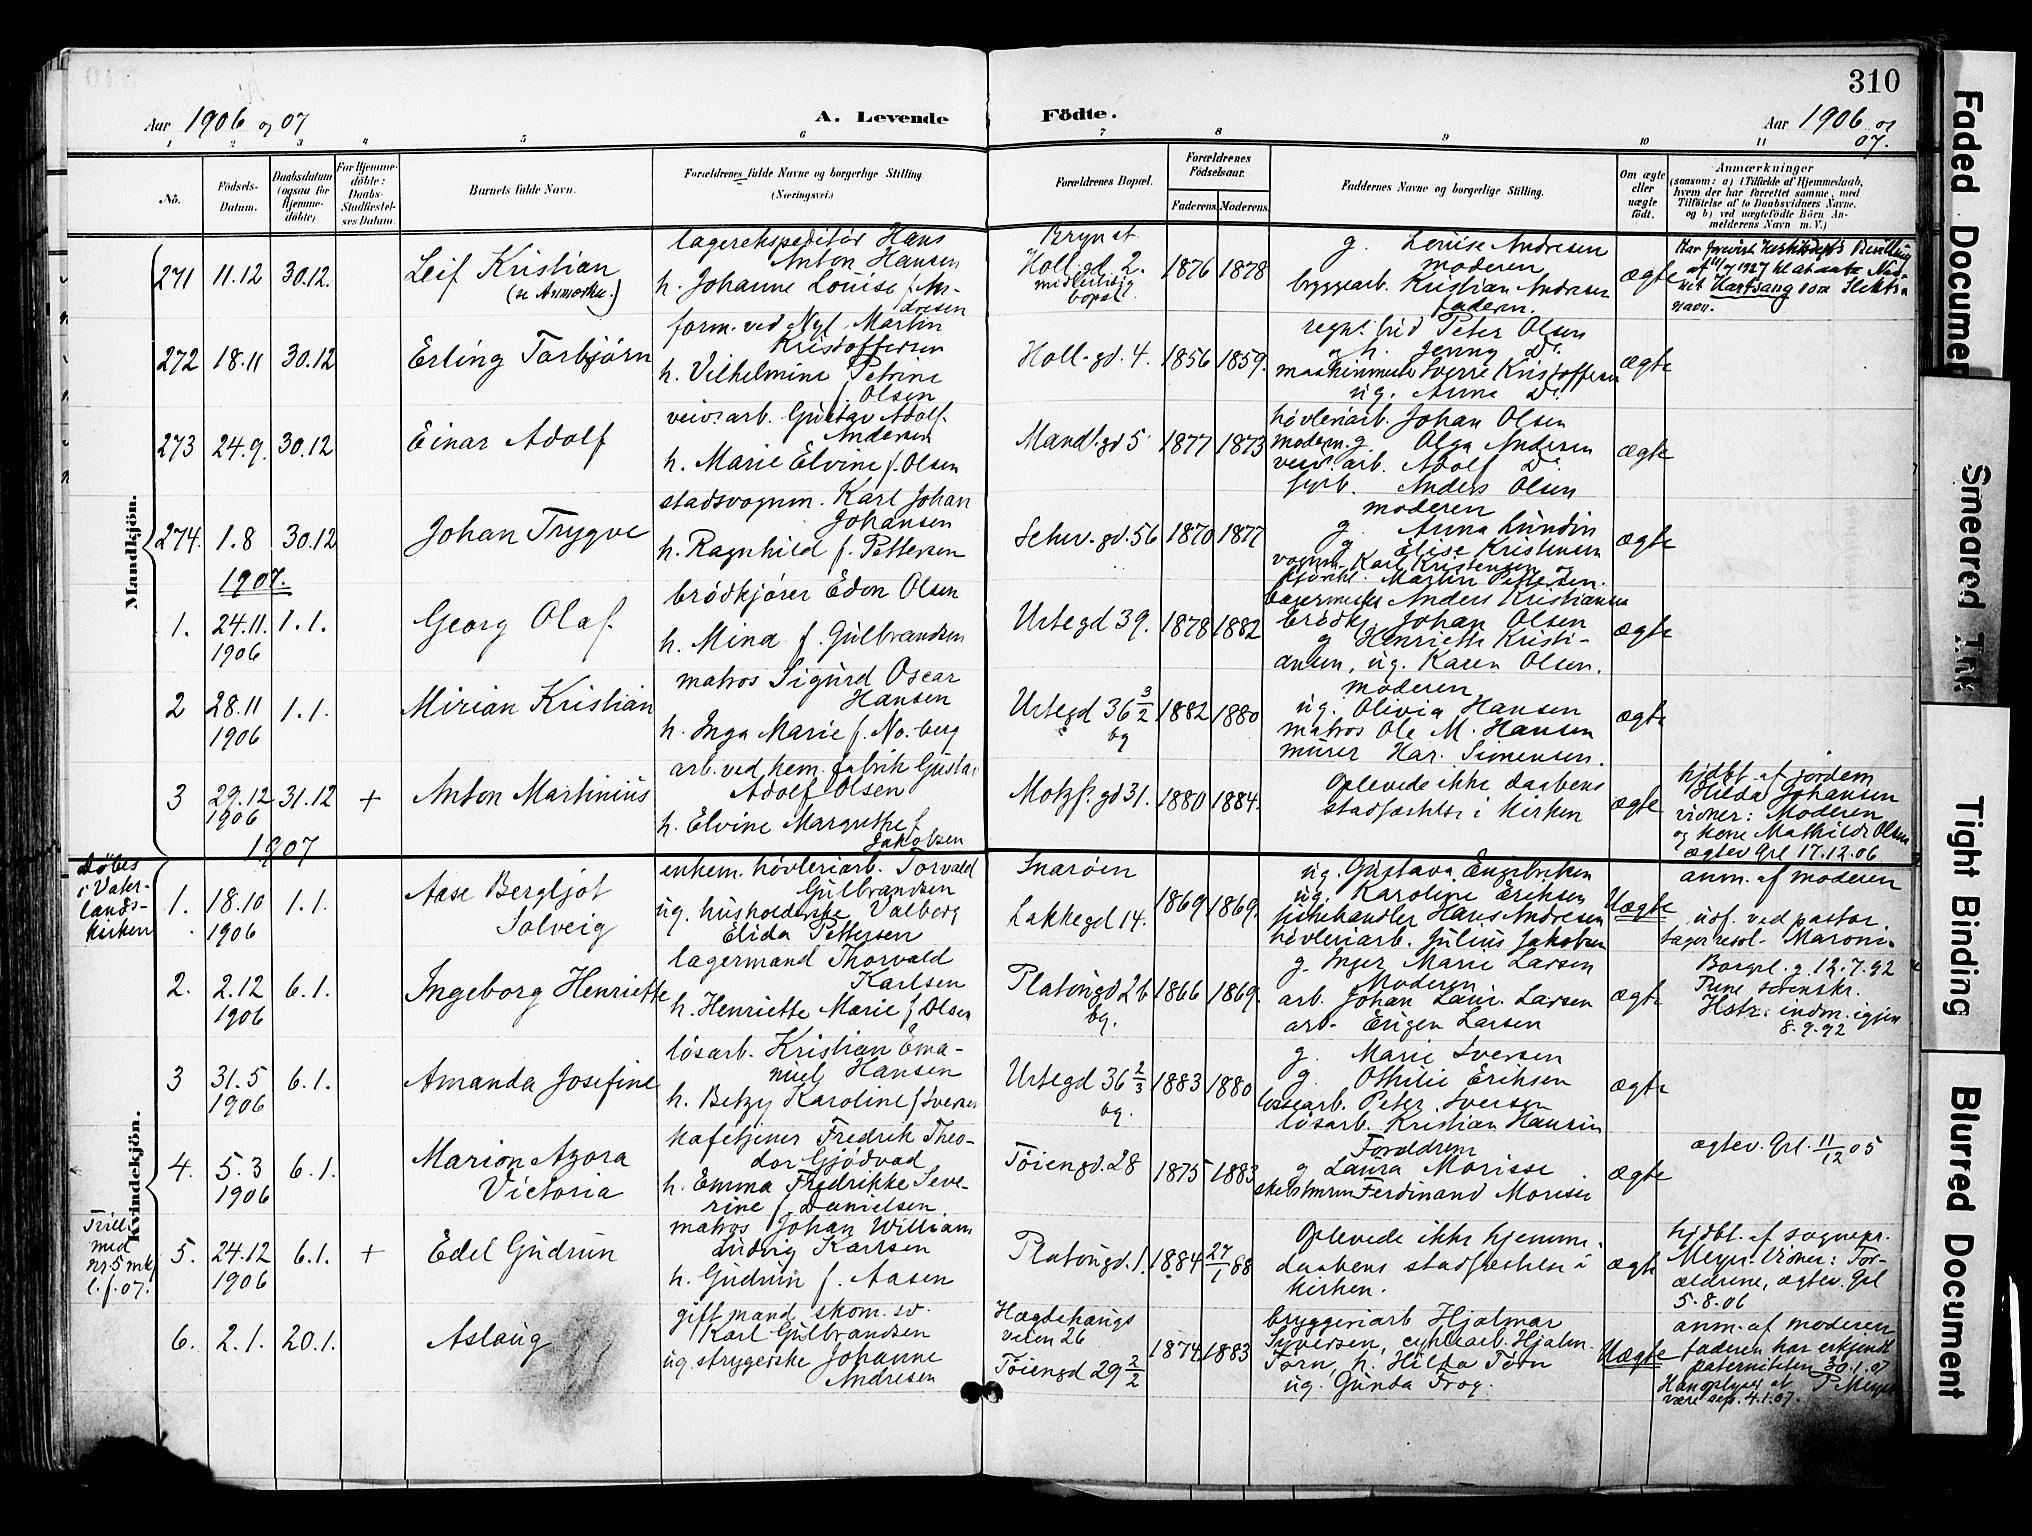 310
Aar 1906 og 07
A. Levende Födte.
Aar 1906 og 07.
1 2 3 4 5 6 7 8 9 10 11
No.
Födsels-Datum.
Daabsdatum (ogsaa for Hjemme-döbte)
For Hjemme-döbte: Daabs-Stadfæstel-ses Datum.
Barnets fulde Navn.
Forældrenes fulde Navne og borgerlige Stilling (Næringsvei.)
Forældrenes Bopæl.
Forældrenes Födselsaar.
Faderens. Moderens.
Faddernes Navne og borgerlige Stilling.
Om ægte eller uægte födt.
Anmærkninger
(saasom: a) i Tilfælde af Hjemmedaab, hvem der har forrettet samme, med Tilföielse af to Daabsvidners Navne, og b) ved uægtefödte Börn Anmelderens Navn m. V.)
Mandkjön.
271 11.12 30.12.
Leif Kristian
(se Anmærkn.)
lagerekspeditör Hans
Anton Hansen
h. Johanne Louise f. An-
dresen
Bryn st
Holl.gd. 2.
midlertidig
bopæl.
1876 1878
g. Louise Andresen
moderen
byggearb. Kristian Andresen
faderen.
ægte
Hartsang som Slekts-
navn.
272 18.11 30.12
Erling Torbjörn
form. ved Nyl. Martin
Kristoffersen
h. Vilhelmine Petrine
f. Olsen
Holl.gd. 4.
1856 1859.
Peter Olsen
og h. Jenny Do.
Sverre Kristoffersen
ug. Anna Do.
ægte
273 24.9. 30.12
Einar Adolf
veivs.arb. Gustav Adolf
Andersen
h. Marie Elvine f. Olsen
Mandl.gd 5
1877 1873
høvleriarb. Johan Olsen
modern. g. Olga Andersen
veivs.arb. Adolf Do.
fyrb. Anders Olsen
ægte
274. 1.8 30.12
Johan Trygve
stadsvognm. Karl Johan
Johansen
h. Ragnhild f. Pettersen
Schw.gd. 56
1870 1877
moderen
g. Anna Lundin
g. Elise Kristensen
vognm. Karl Kristensen og
Martin Pettersen.
ægte
1907.
1. 24.11. 1906 1.1.
Georg Olaf
brödkjörer Edon Olsen
h. Mina f. Gulbrandsen
Urtegd 39.
1878 1882
bagermester Anders Kristiansen
brödkj. Johan Olsen
g. Henriette Kristi-
ansen, ug. Karen Olsen.
ægte
2 28.11 1906 1.1.
Mirian Kristian
matros Sigurd Oscar
Hansen
h. Inga Marie f. No. berg
Urtegd 36 3/2
bg
1882 1880
moderen
ug. Olivia Hansen
matros Ole M. Hansen
murer Har. Simensen.
ægte
3 29.12 1906 31.12 +
Anton Martinius
arb. ved kem. fabrik Gustav
Adolf Olsen
h. Elvine Margrethe f.
Jakobsen
Motzf.gd 31.
1880 1884.
Oplevede ikke daabens
stadfæstelse i kirken
ægte
hjdbt. af jordem
Hilda Johansen
vidner: Moderen
og kone Mathilde Olsen
ægtev. Grl 17.12.06
1907
Kvindekjön.
Döbes
i Vater-
lands-
kirken
1. 18.10 1906 1.1.
Aase Bergljot
Solveig
enkem. høvleriarb. Torvald
Gulbrandsen
ug. husholderske Valborg
Elida Pettersen
Snaröen
Lakkegd 14.
1869 1869.
ug. Gustava Engebriksen
ug. Karoline Eriksen
fiskehandler Hans Andresen
høvleriarb. Julius Jakobsen
Uægte
anm. af moderen
udf. ved pastor
Maroni.
2. 2.12 1906 6.1.
Ingeborg Henriette
lagermand Thorvald
Karlsen
h. Henriette Marie f. Olsen
Platougd 26
bg.
1866 1869.
g. Inger Marie Larsen
Moderen
arb. Johan Laur. Larsen
arb. Eugen Larsen
ægte
Borgvl. g. 12.7.92
Tune
indm. igjen
8.9.92
3 31.5 1906 6.1.
Amanda Josefine
lösarb. Kristian Ema-
nuel Hansen
h. Betzy Karoline f. Iversen
Urtegd 36 2/3
bg.
1883 1880
g. Marie Iversen
g. Othilie Eriksen
lossearb. Peter Iversen
lösarb. Kristian Hansen
ægte
4. 5.3 1906 6.1.
Marion Agora
Victoria
kafetjener Fredrik Theo-
dor Gjödvad
h. Emma Fredrikke Seve-
rine f. Danielsen
Töiengd. 28
1875 1883
Foreldrene
g. Laura Morisse
Ferdinand Morisse
ægte
ægtev. Grl. 11/12 05
Trill.
med
nr 5 mk
l.f. 07.
5. 24.12 1906 6.1. +
Edel Gudrun
matros Johan William
Ludvig Karlsen
h. Gudrun f. Aasen
Platougd. 1.
1884 27/1 88
Oplevede ikke hjemme-
daabens stadfæstelse i
kirken.
ægte
hjdbt. af sognepr.
Meyer. Vidner: For-
ældrene, ægtev. Grl
5.8.06
6. 2.1. 20.1.
Aslaug
gift mand skom. sv.
Karl Gulbrandsen
ug. strygerske Johanne
Andresen
Hægdehaugs
veien 26
Töiengd 29 2/2
1874 1883
bryggeriarb Hjalmar
Syversen, cyklearb. Hjalm.
Torn, h. Hilda Torn
ug. Gunda Frog.
Uægte
anm. af moderen
faderen har erkjendt
paterniteten 30.1.07
P Meyer
være sep. 4.1.07.
Faded Document
Smeared Ink
Tight Binding
Blurred Document